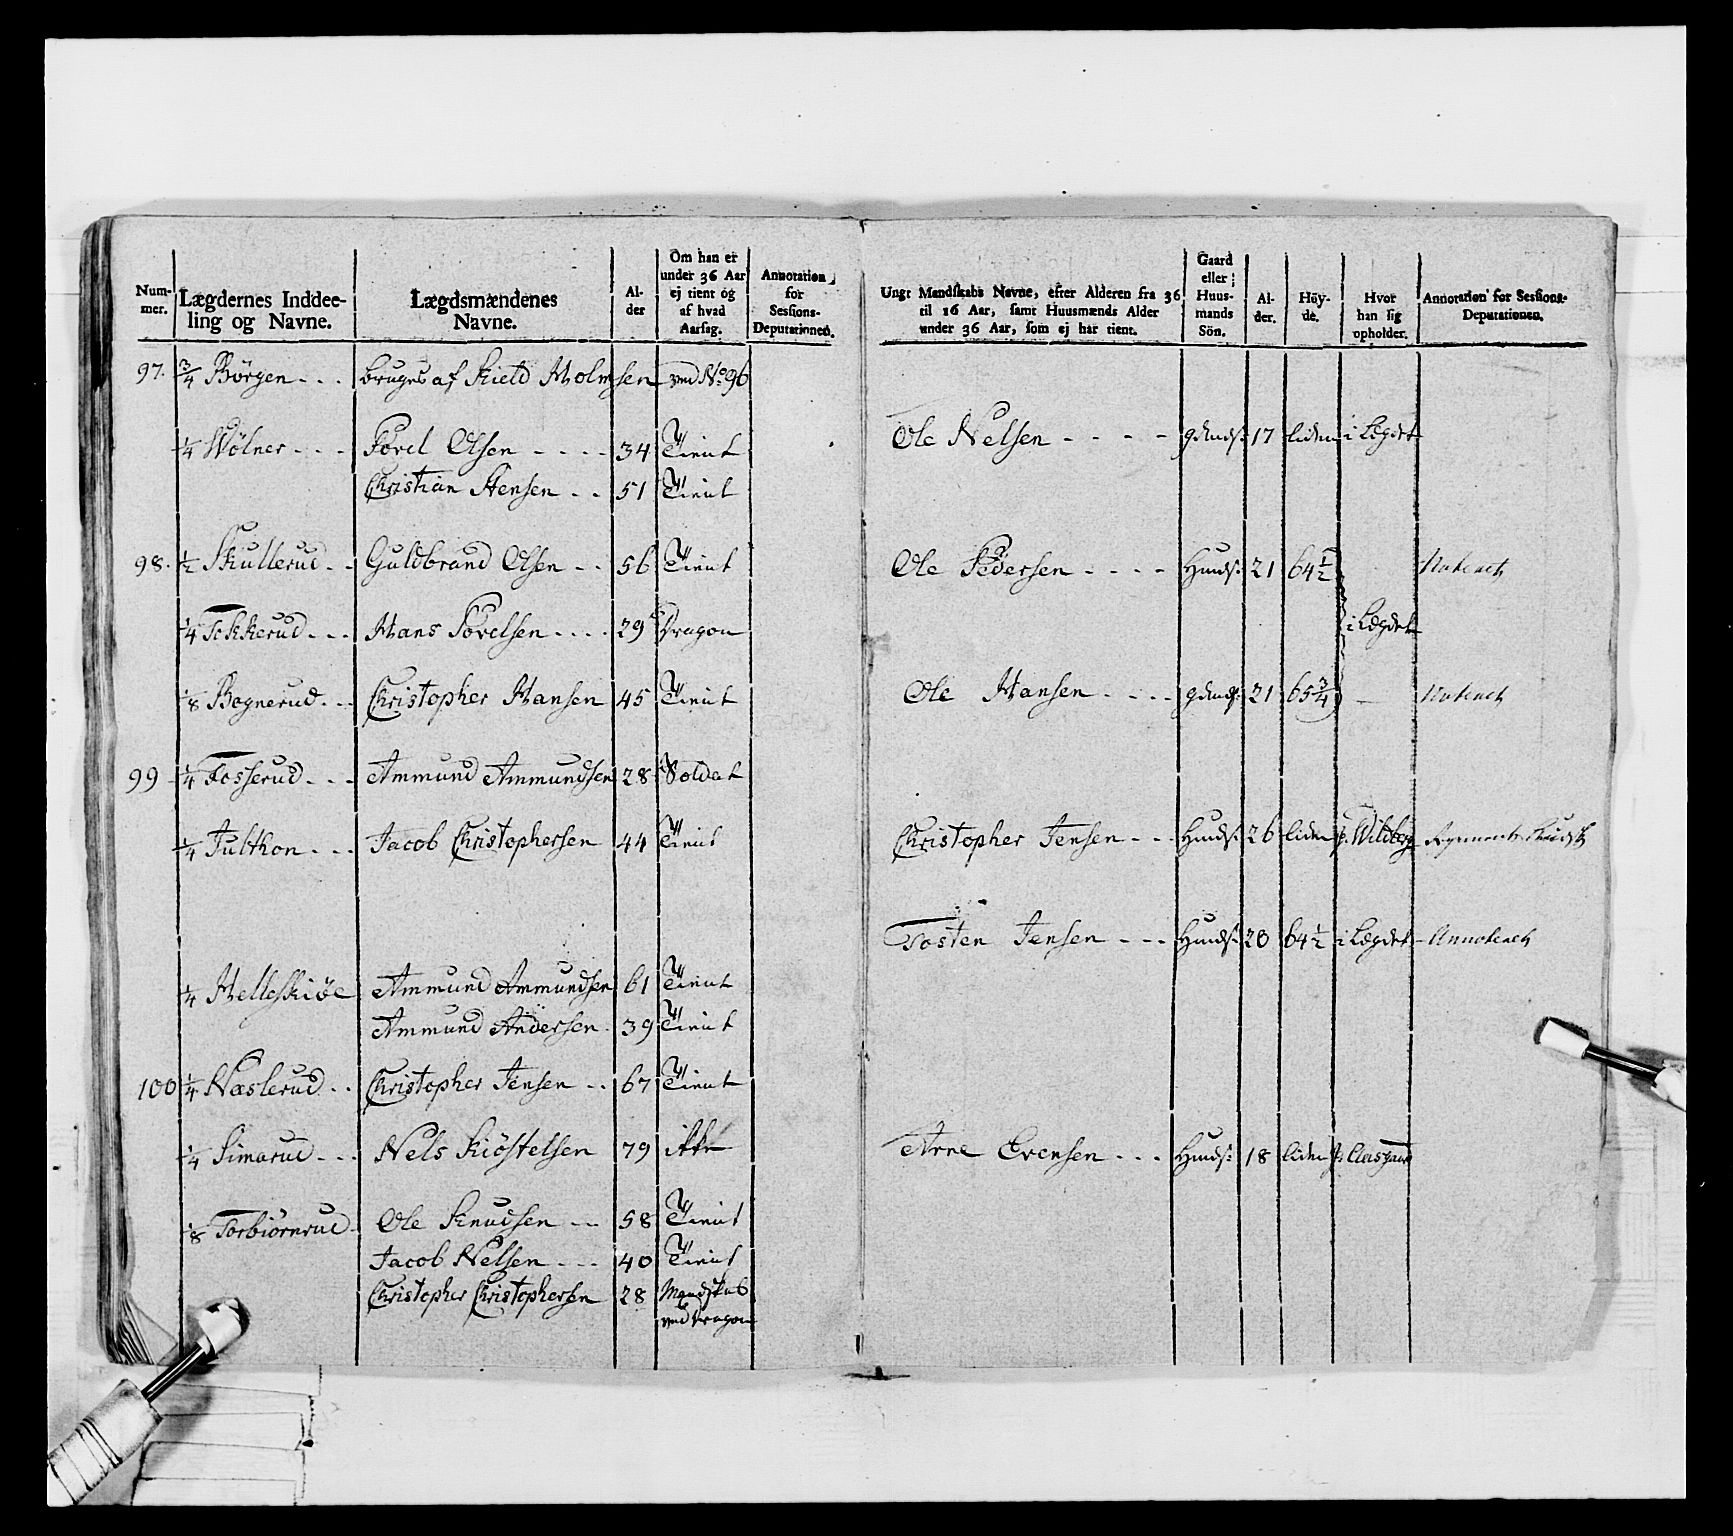 Num-mer. Lægdernes Inddee-ling og Navne. Lægdsmændenes Navne. Al-der Om han er under 36 Aar ej tient og af hvad Aarsag. Annotation for Sessions-Deputationen.
97. 3/4 Börgen - - - bruges af Kield Holmsen ved No 96
1/4 Wölner - - - Povel Olsen - - - - 34 Tient
Christian Hensen - - 51 Tient
98. 1/2 Skullerud - - Guldbrand Olsen - - 56 Tient
1/4 Tekkerud - - - Hans Povelsen - - - - 29 Dragon
1/8 Bognerud - - - Christopher Hansen 45 Tient
99 - 1/4 Fosserud - - - Ammund Ammundsen 28 Soldat
1/4 Julthon - - - Jacob Christophersen 44 Tient
1/4 Helleskiöe Ammund Ammundsen 61 Tient
Ammund Andersen - 39 Tient
100 1/4 Næslerud - - Christopher Jensen - - 67 Tient
1/4 Simarud - - - Nels Kiöstelsen 79 ikke
1/8 Torbiörnrud - Ole Knudsen - - 58 Tient
Jacob Nelsen - - - 40 Tient
Christopher Christophersen 28 Mandskab
ved Dragon
Ungt Mandskabs Navne, efter Alderen fra 36 til 16 Aar, samt Huusmænds Alder under 36 Aar, som ej har tient. Gaard eller Huus-mands Sön. Al-der. Höy-de. Hvor han sig opholder. Annotation for Sessions-Deputationen.
Ole Nelsen - - - - gdmds: 17 liden i Legdet
Ole Pedersen - - - - Hmds: 21 64 1/2
i Legdet
Ole Hansen - - - - gdmds: 21 65 3/4
Christopher Jensen - - - Hmds: 26 liden
Tosten Jensen - - - Hmds: 20 64 1/2 i Legdet
Arne Evensen - - - Hmds: 18 liden